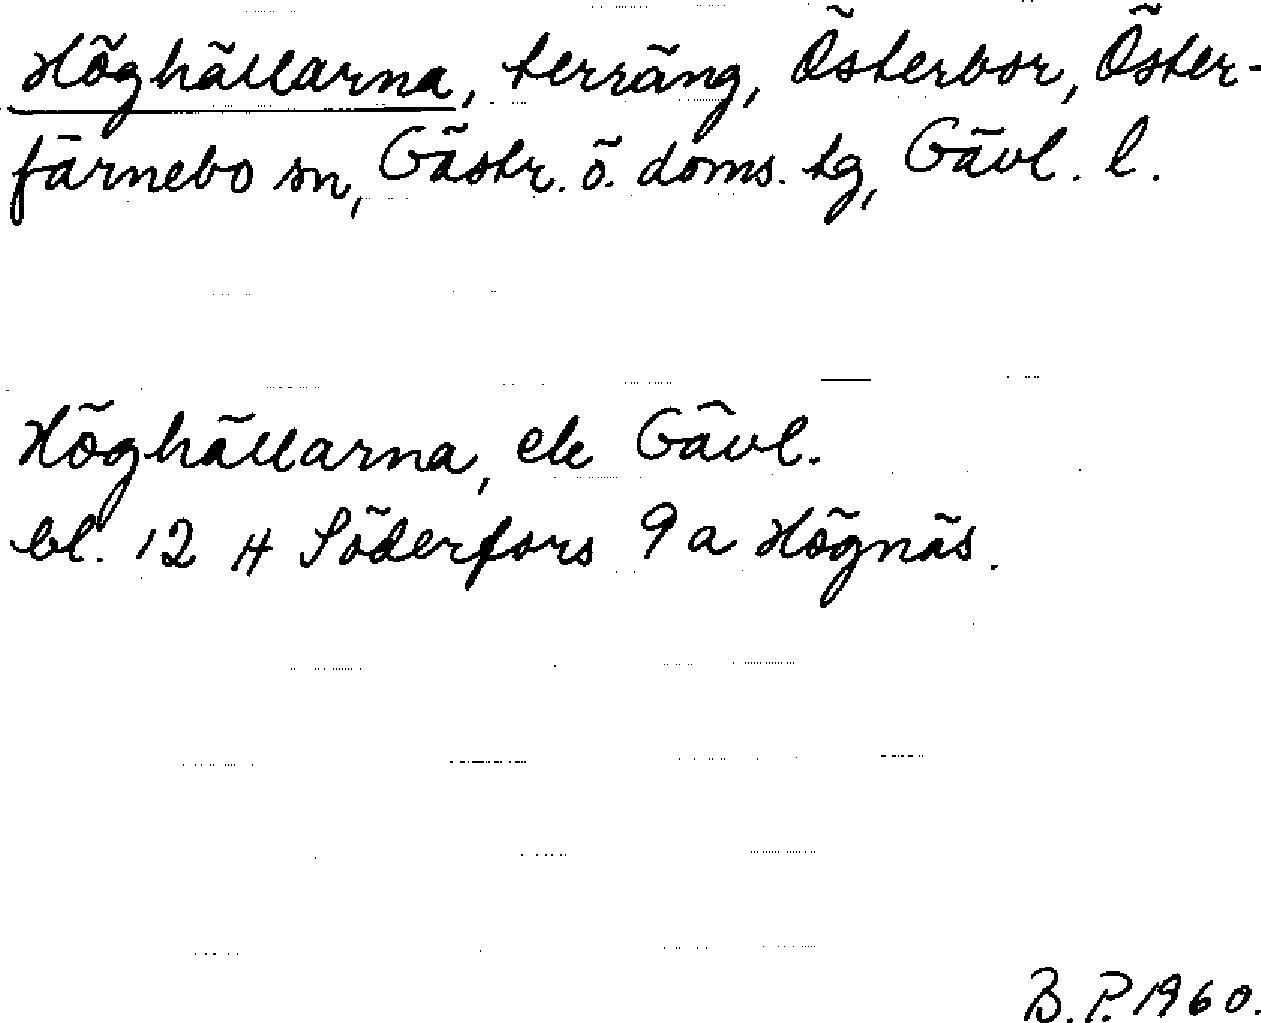 Höghällarna, terräng, Österbor, Öster-
färnebo sn, Gästr. ö. doms. tg, Gävl. l.
Höghällarna, ek Gävl.
bl. 12 H Söderfors 9 a Högnäs.
B.P. 1960.